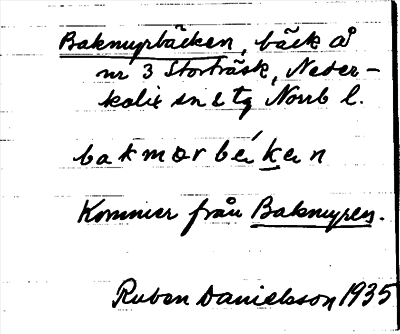 Bakmyrbäcken, bäck å
nr 3 Storträsk, Neder-
kalix sn o tg Norrb l.
bakmorbéken
Kommer från Bakmyren.
Ruben Danielsson 1935